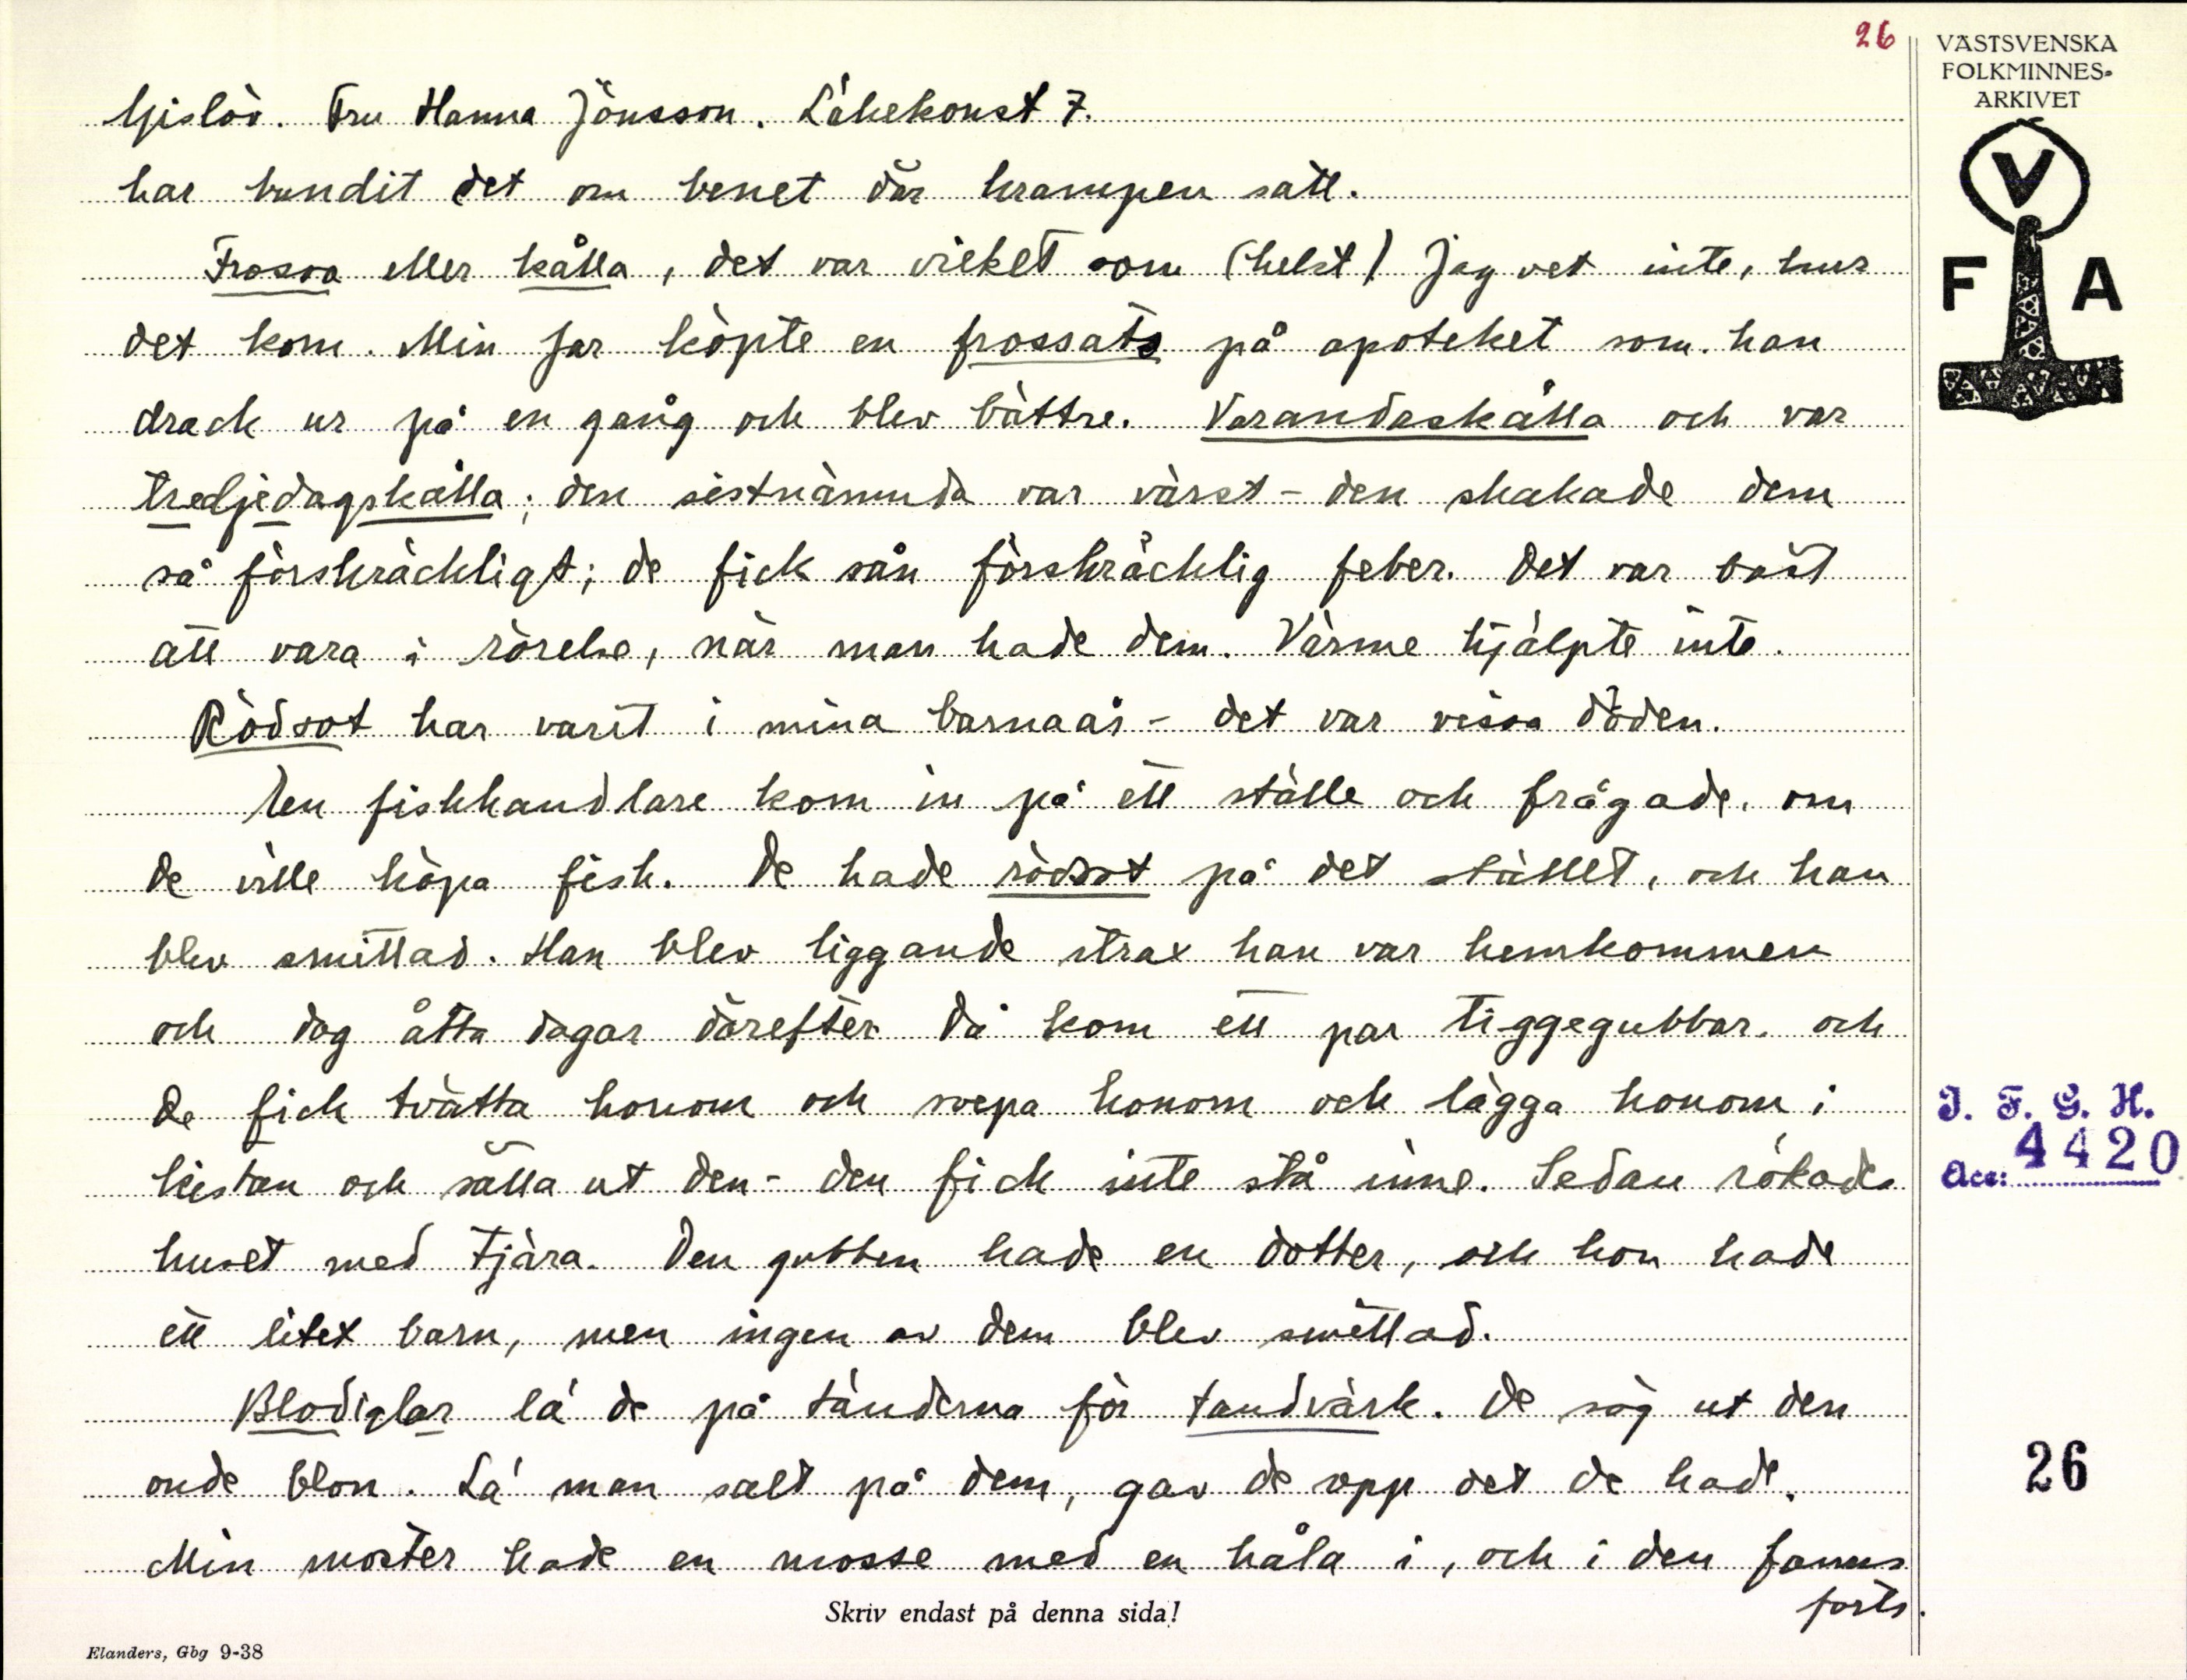 26
VÄSTSVENSKA
FOLKMINNES-
ARKIVET
V
F A
Gislöv. Fru Hanna Jönsson. Läkekonst 7.
har bundit det om benet där krampen satt.
Frossa eller kålla, det var vilket som (helst) Jag vet inte, hur
det kom. Min far köpte en frossats på apoteket som han
drack ur på en gång och blev bättre. Varandaskålla och var
tredjedagskålla; den sistnämnda var värst - den skakade dem
så förskräckligt; de fick sån förskräcklig feber. Det var bäst
att vara i rörelse, när man hade dem. Värme hjälpte inte.
Rödsot har varit i mina barnaår - det var vissa döden.
En fiskhandlare kom in på ett ställe och frågade, om
de ville köpa fisk. De hade rödsot på det stället, och han
blev smittad. Han blev liggande strax han var hemkommen
och dog åtta dagar därefter. Då kom ett par tiggegubbar och
de fick tvätta honom och svepa honom och lägga honom i
kistan och sätta ut den - den fick inte stå inne. Sedan rökade
huset med tjära. Den gubben hade en dotter, och hon hade
ett litet barn, men ingen av dem blev smittad.
Blodiglar la' de på tänderna för tandvärk. De sög ut den
onde blon. La' man salt på dem, gav de opp det de hade.
Min moster hade en mosse med en håla i, och i den fanns
forts.
Skriv endast på denna sida!
Elanders, Gbg 9-38
I. F. G. H.
Acc: 4420
26